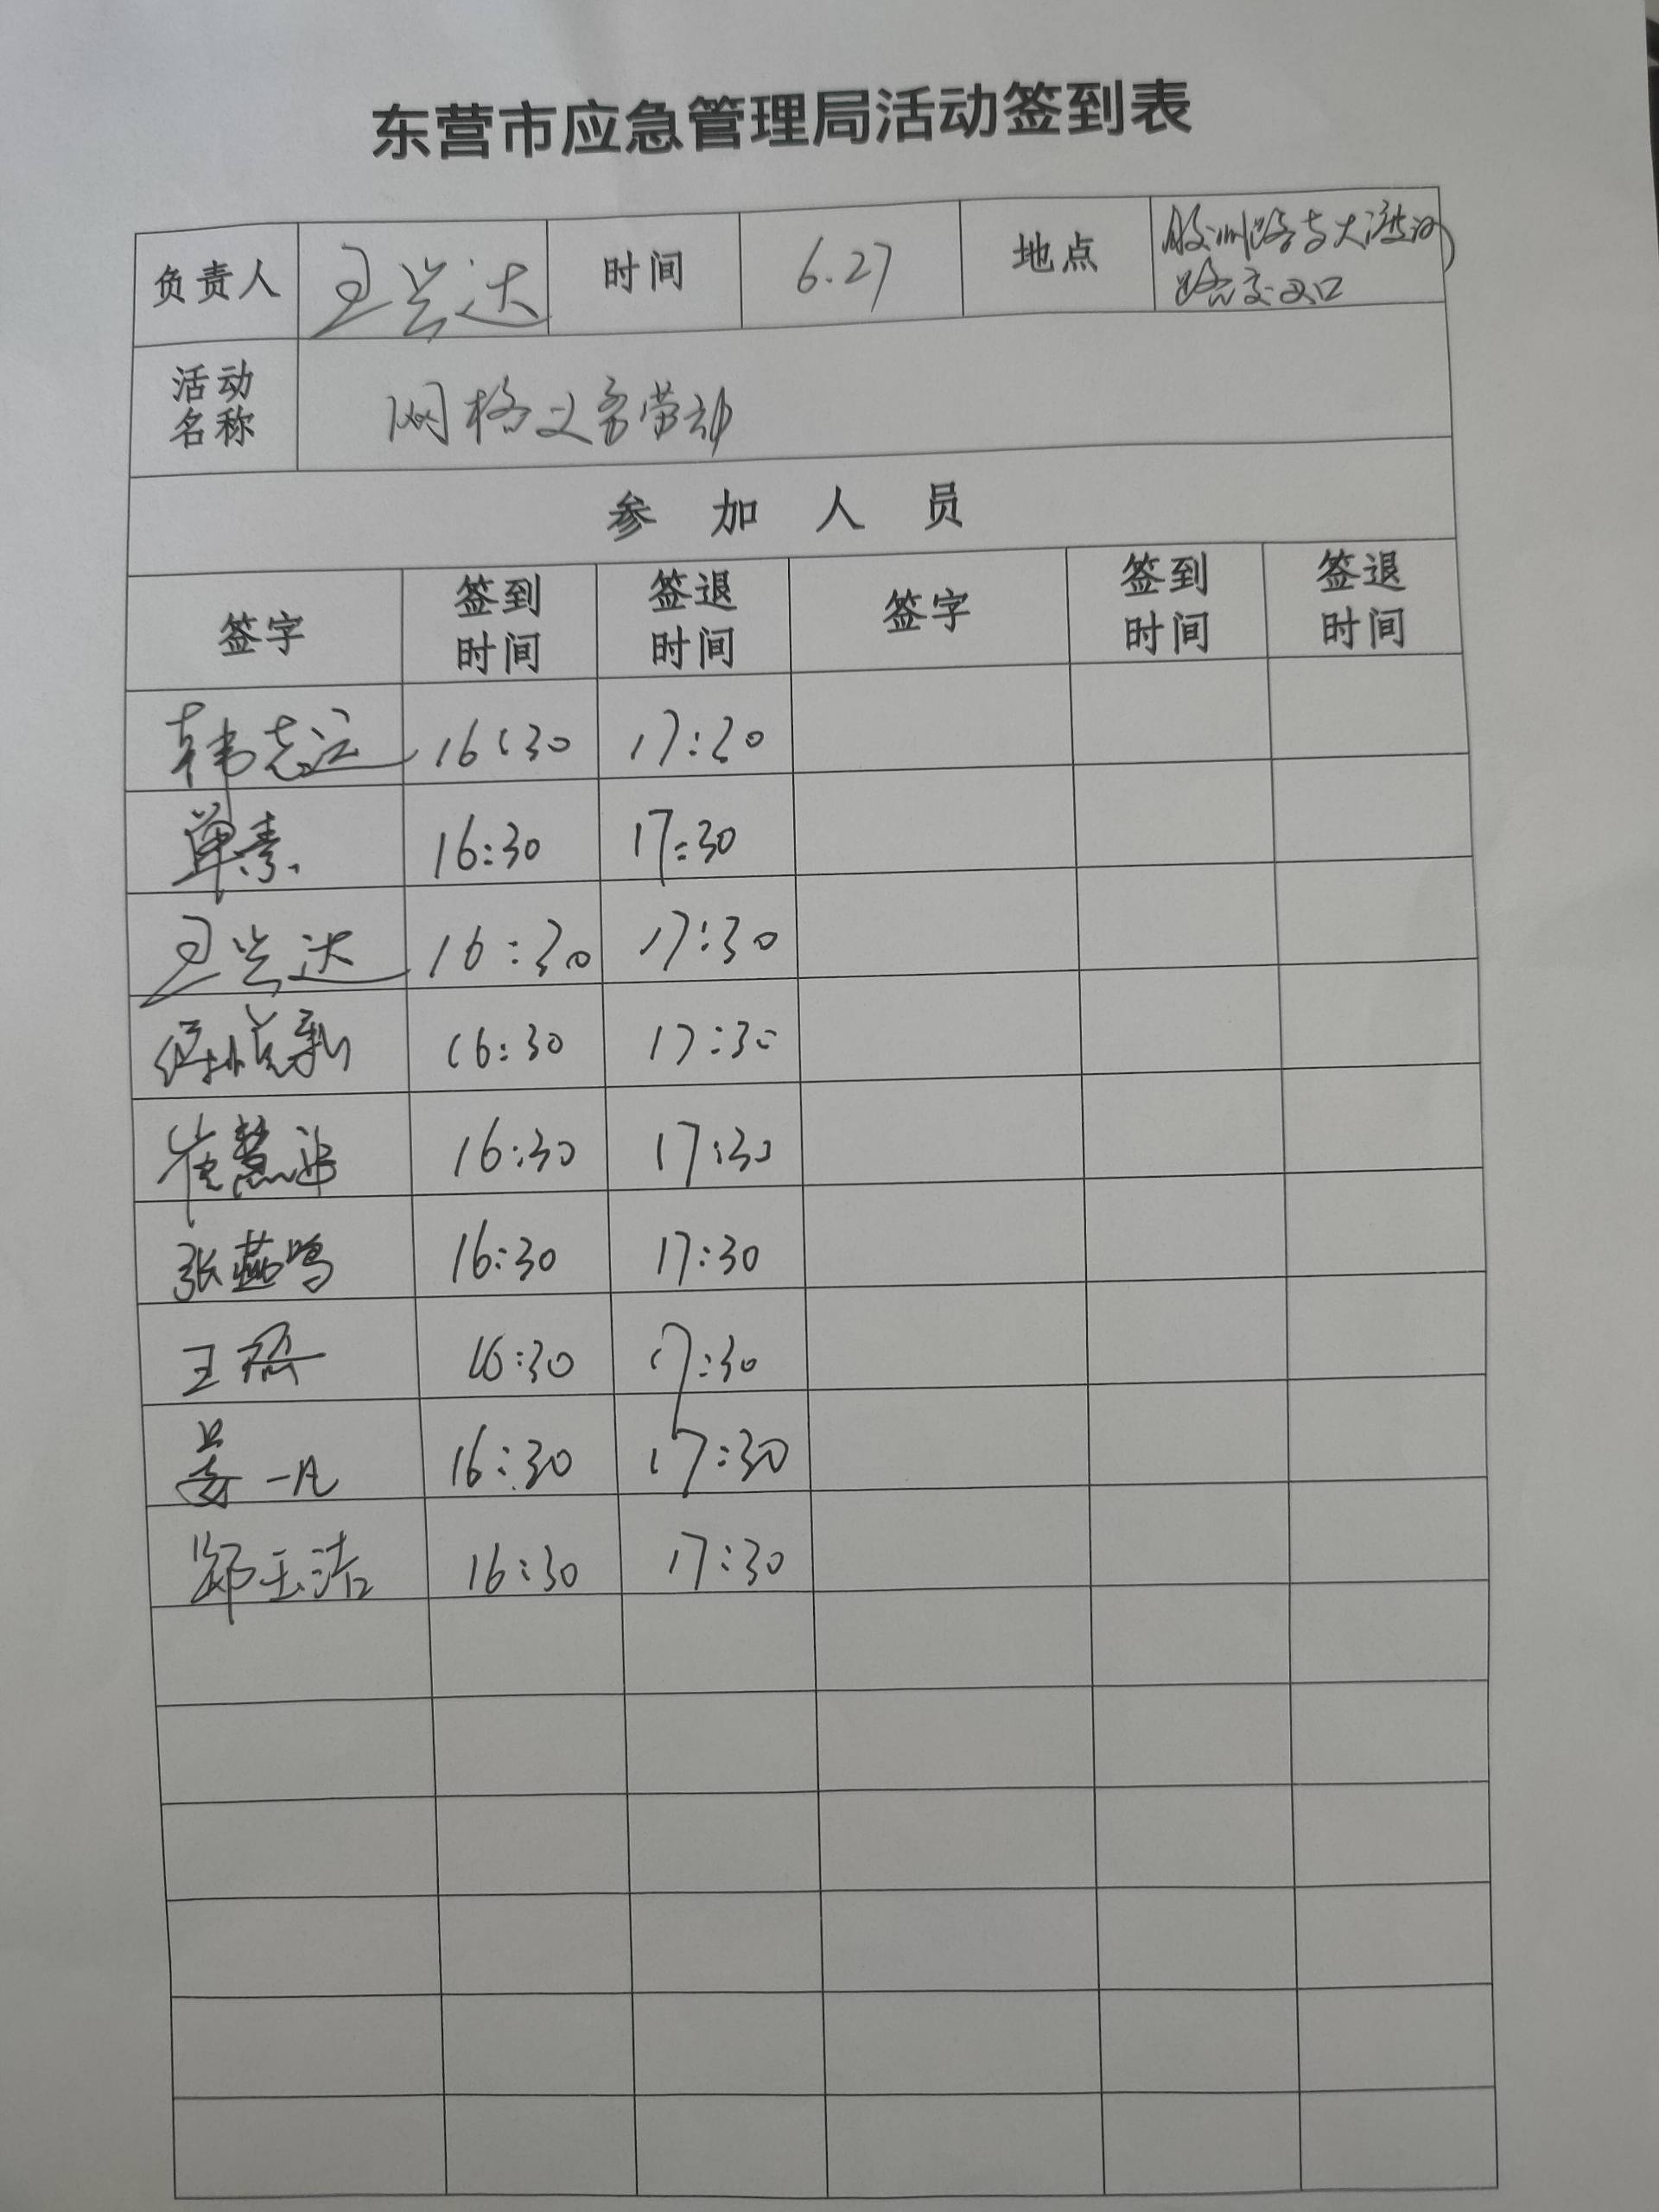 东营市应急管理局活动签到表
负责人 王兰达 时间 6.27 地点 胶州路与大渡河
路交叉口
活动
名称
网格义务劳动
参加人员
签字 签到
时间 签退
时间 签字 签到
时间 签退
时间
韩志远 16:30 17:30
单素 16:30 17:30
王兰达 16:30 17:30
16:30 17:30
崔慧 16:30 17:30
张燕鸣 16:30 17:30
王 16:30 17:30
姜一凡 16:30 17:30
郑玉洁 16:30 17:30